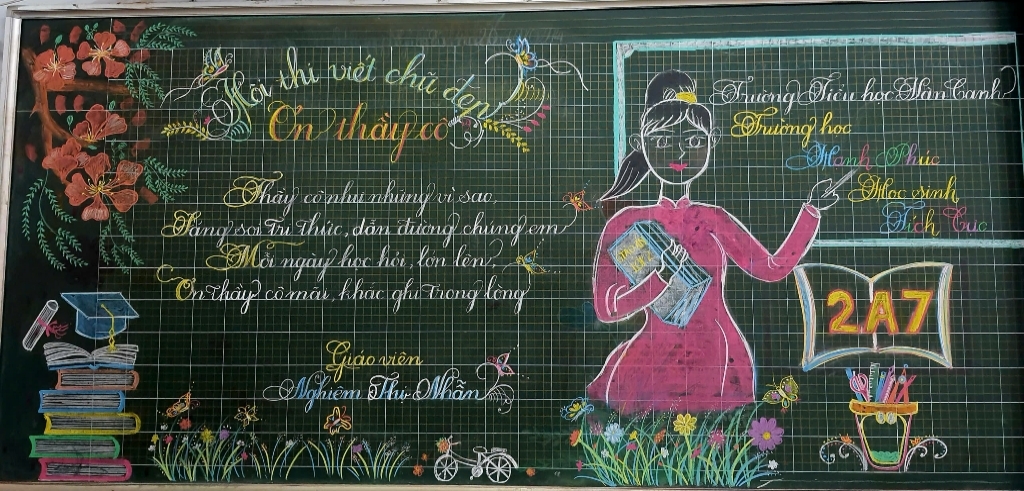 Hội thi viết chữ đẹp
Ơn thầy cô
Thầy cô như những vì sao,
Sáng soi tri thức, dẫn đường chúng em
Mỗi ngày học hỏi, lớn lên,
Ơn thầy cô mãi, khắc ghi trong lòng
Giáo viên
Nghiêm Thị Nhẫn
Trường Tiểu học Văn Canh
Trường học
Hạnh Phúc
Học sinh
Tích Cực
2A7